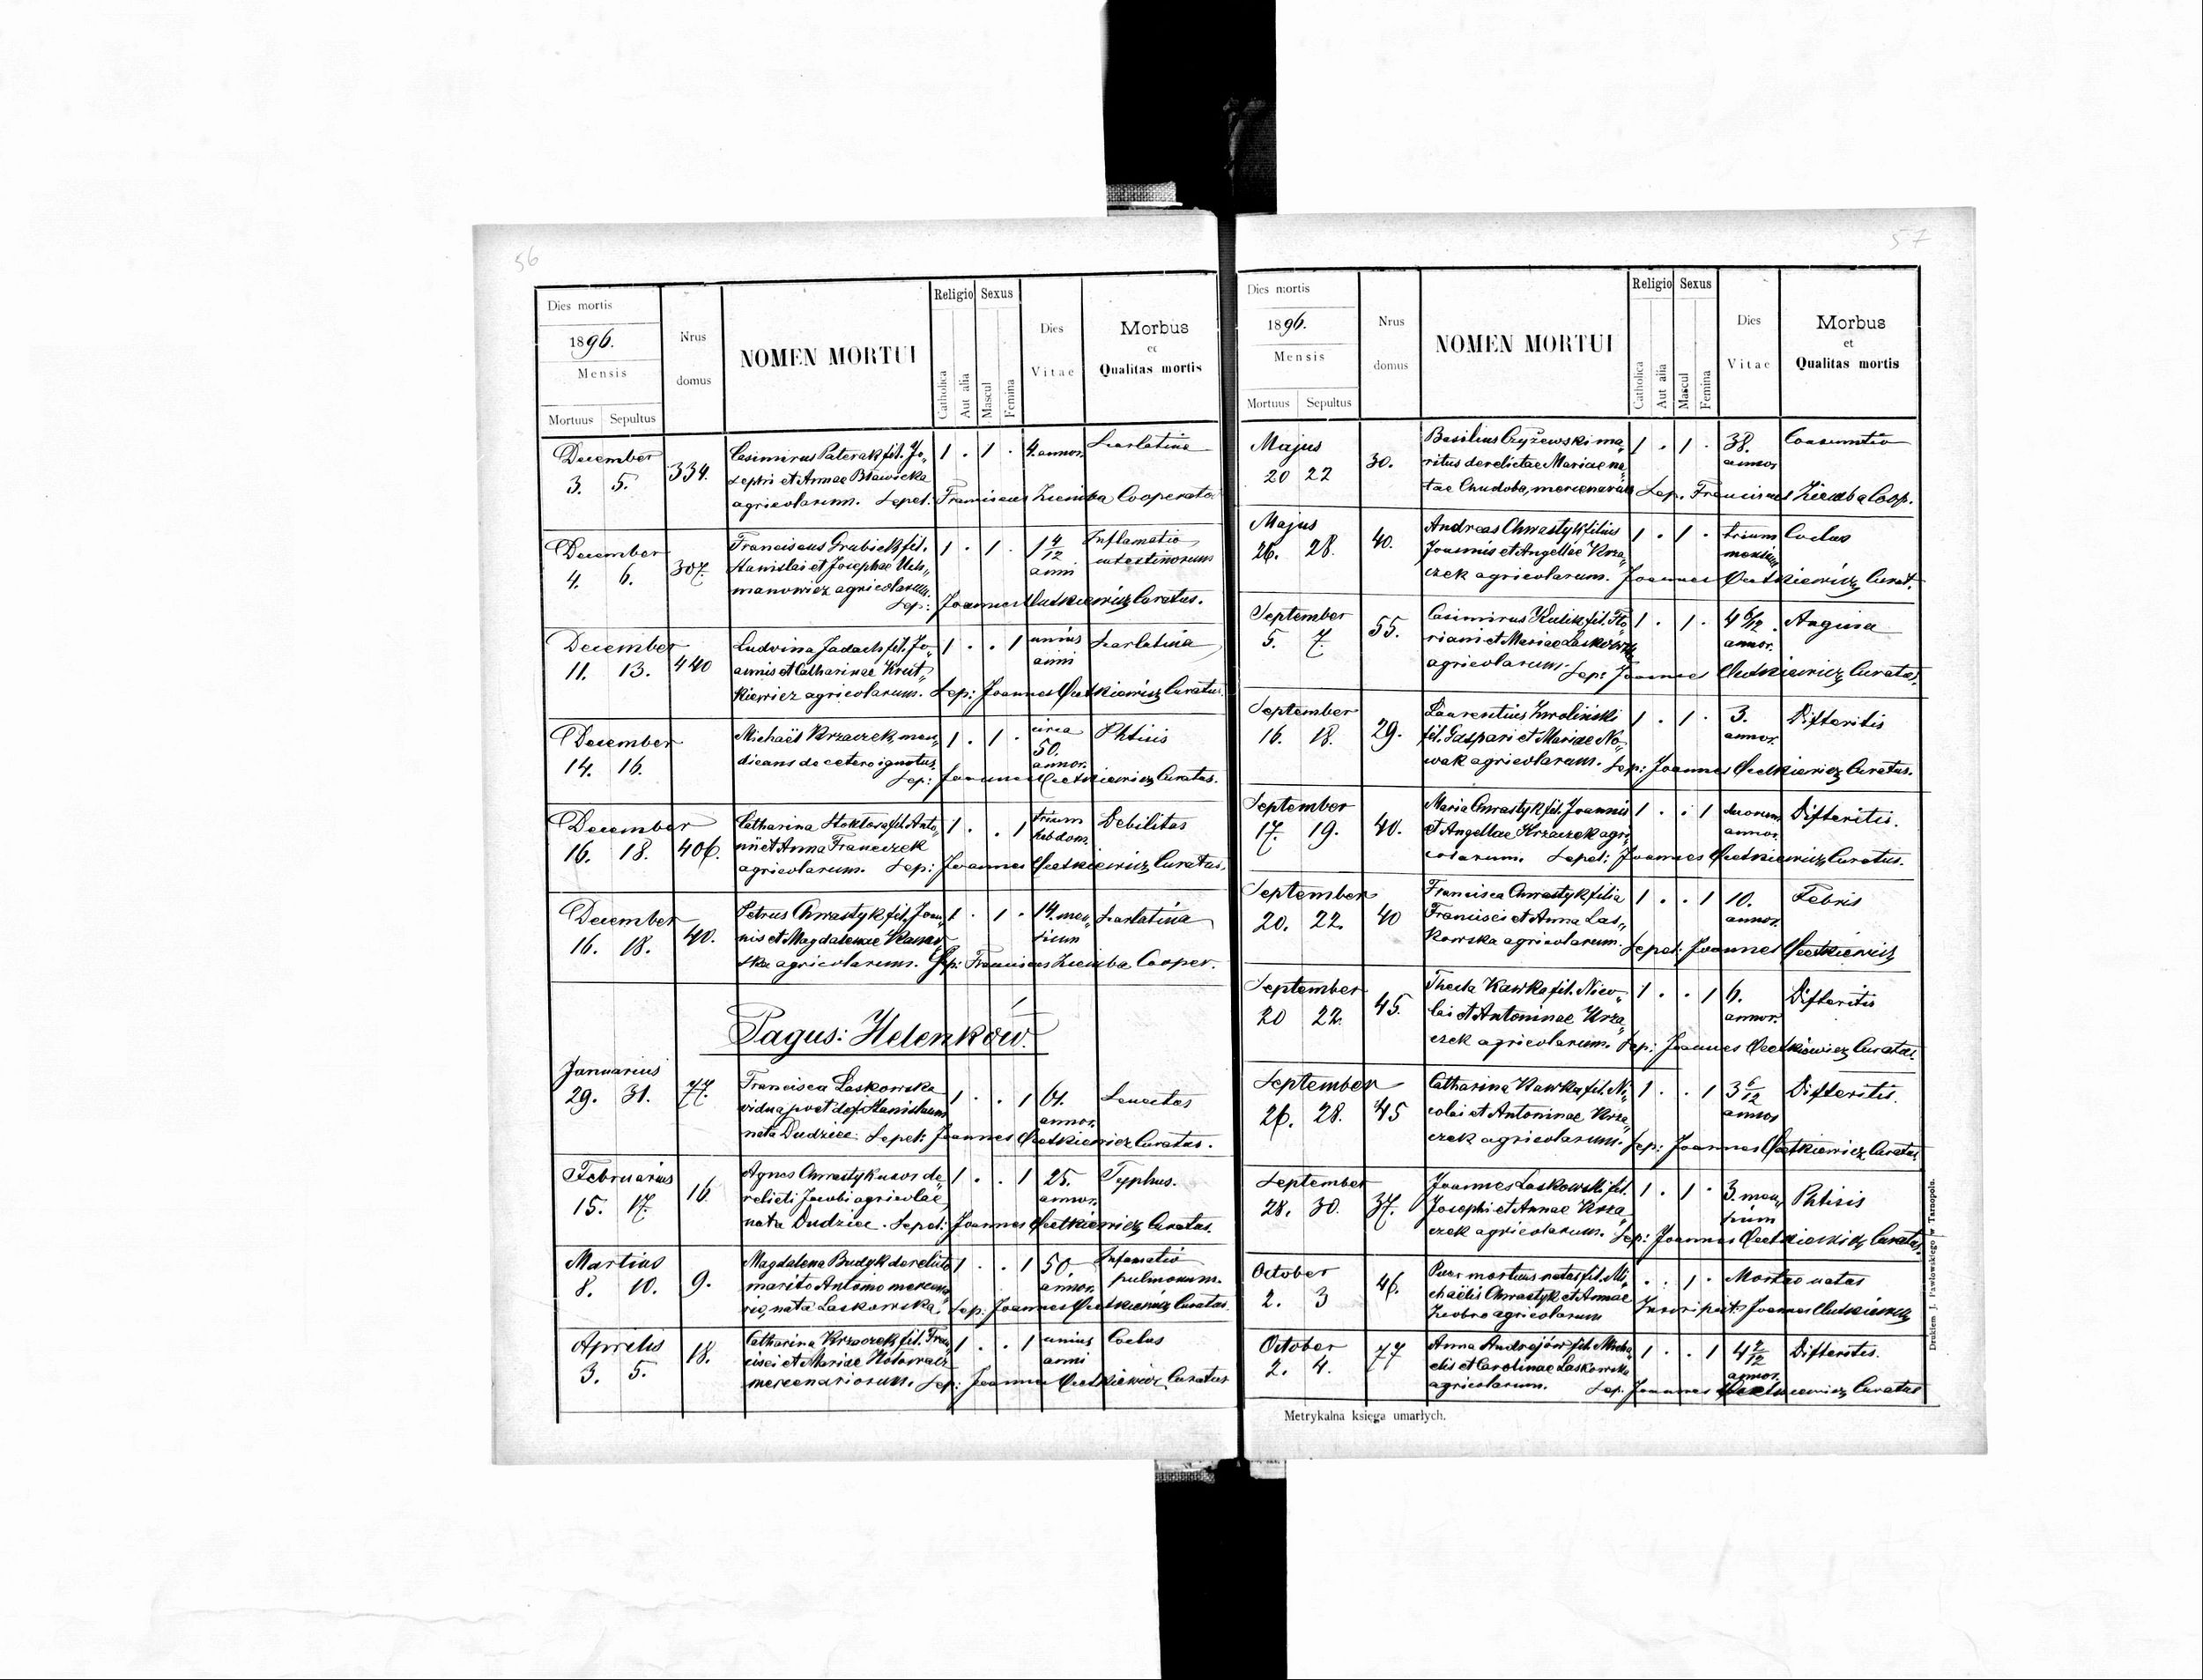 56
Dies mortis
1896.
Mensis
Mortuus Sepultus
Nrus
domus
NOMEN MORTUI
Religio
Catholica
Aut alia
Sexus
Mascul
Femina
Dies
Vitae
Morbus
et
Qualitas mortis
December
3. 5.
334.
Casimirus Paterak fil. Jo„
sephi et Annae Bławicka
agricolarum. Sepel. Franciscus Ziemba Cooperator
1 . 1 .
4. annor.
Scarlatina
December
4. 6.
307.
Franciscus Grabick fil.
Stanislai et Josephae Uch„
manowicz agricolarum.
Sep: Joannes Curatus.
1 . 1 .
1 4/12
anni
Inflamatio
intestinorum
December
11. 13.
440
Ludvina Jadach fil. Jo„
annis et Catharinae Krut„
kiewicz agricolarum. Sep: Joannes Curatus.
1 . . 1
unius
anni
Scarlatina
December
14. 16.
Michaël Krzaczek, men„
dicans de cetero ignotus.
Sep: Joannes Curatus.
1 . 1 .
circa
50.
annor.
Phtisis
December
16. 18.
406.
Catharina Stoktosa fil. Anto„
nii et Anna Franczek
agricolarum. Sep: Joannes Curatus.
1 . . 1
trium
hebdom.
Debilitas
December
16. 18.
40.
Petrus Chrastyk fil. Joan„
nis et Magdalenae
ska agricolarum. Sep: Franciscus Ziemba Cooper.
1 . 1 .
14. men„
sium
Scarlatina
Pagus: Helenków.
Januarius
29. 31.
77.
Francisca Laskowska
vidua post def. Stanislaum
nata Dudziec. Sepel: Joannes Curatus.
1 . . 1
61.
annor.
Senectas
Februarius
15. 17.
16.
Agnes Chrastyk uxor de„
relicti Jacobi agricolae,
nata Dudziec. Sepel: Joannes Curatus.
1 . . 1
25.
annor.
Typhus.
Martius
8. 10.
9.
Magdalena Budyk derelicto
marito Antonio mercena
rio, nata Laskowska. Sep: Joannes Curatus.
1 . . 1
50
annor.
Infamatio
pulmonum.
Aprilis
3. 5.
18.
Catharina Krzaczek fil. Fran„
cisci et Mariae
mercenariorum. Sep: Joannes Curatus
1 . . 1
unius
anni
Coclus
57
Dies mortis
1896.
Mensis
Mortuus Sepultus
Nrus
domus
NOMEN MORTUI
Religio
Catholica
Aut alia
Sexus
Mascul
Femina
Dies
Vitae
Morbus
et
Qualitas mortis
Majus
20 22
30.
Basilius Czyżewski ma„
ritus derelictae Mariae na„
tae Chudoba, mercenarius Sep. Franciscus Ziemba Coop.
1 . 1 .
38.
annor.
Consumtio
Majus
26. 28.
40.
Andreas Chwastyk filius
Joannis et Angellae Krza„
czek agricolarum. Joannes Curat.
1 . 1 .
trium
mensium
Coclus
September
5. 7.
55.
Casimirus Kulik fil. Flo„
riani et Mariae Laskowska
agricolarum. Sep: Joannes Curatus.
1 . 1 .
4 6/12
annor.
Angina
September
16. 18.
29.
Laurentius Zwoliński
fil. Gaspari et Mariae No„
wak agricolarum. Sep: Joannes Curatus.
1 . 1 .
3.
annor.
Difteritis
September
17. 19.
40.
Maria Chrastyk fil. Joannis
et Angellae Krzaczek agri„
colarum. Sepel: Joannes Curatus.
1 . . 1
duorum
annor.
Difteritis.
September
20. 22.
40
Francisca Chrastyk filia
Francisci et Anna Las„
kowska agricolarum. Sepel: Joannes
1 . . 1
10.
annor.
Febris
September
20 22.
45.
Thecla Kawka fil. Nico„
lai et Antoninae Krza„
czek agricolarum. Sep: Joannes Curatus.
1 . . 1
6.
annor.
Difteritis
September
26. 28.
45
Catharina Kawka fil. Ni„
colai et Antoninae Krza„
czek agricolarum. Sep: Joannes Curatus
1 . . 1
3 6/12
annor
Difteritis.
September
28. 30.
37.
Joannes Laskowski fil.
Josephi et Annae Krza„
czek agricolarum. Sep: Joannes Curatus.
1 . 1 .
3. men„
sium
Phtisis
October
2. 3
46.
Puer mortuus natus fil. Mi„
chaëlis Chrastyk et Annae
Ziobro agricolarum Inscripsit: Joannes
. . 1 .
Mortuo natus
October
2. 4.
77
Anna Andrejów fil. Micha„
elis et Carolinae Laskowska
agricolarum. Sep. Joannes Curatus
1 . . 1
4 2/12
annor.
Difteritis.
Metrykalna księga umarłych.
Drukiem J. Pawłowskiego w Tarnopolu.